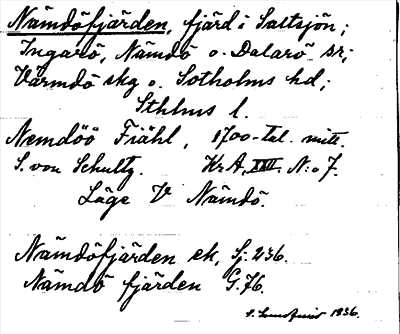 Nämdöfjärden, fjärd i Saltsjön;
Ingarö, Nämdö o. Dalarö sr;
Värmdö skg o. Sotholms hd;
Sthlms l.
Nemdöö Fiähl, 1700-tal. mitt.
S. von Schultz. Kr A, XXII. N:o 7.
Läge V Nämdö.
Nämdöfjärden ek, Sj. 236.
Nämdö fjärden G. 76.
1936.